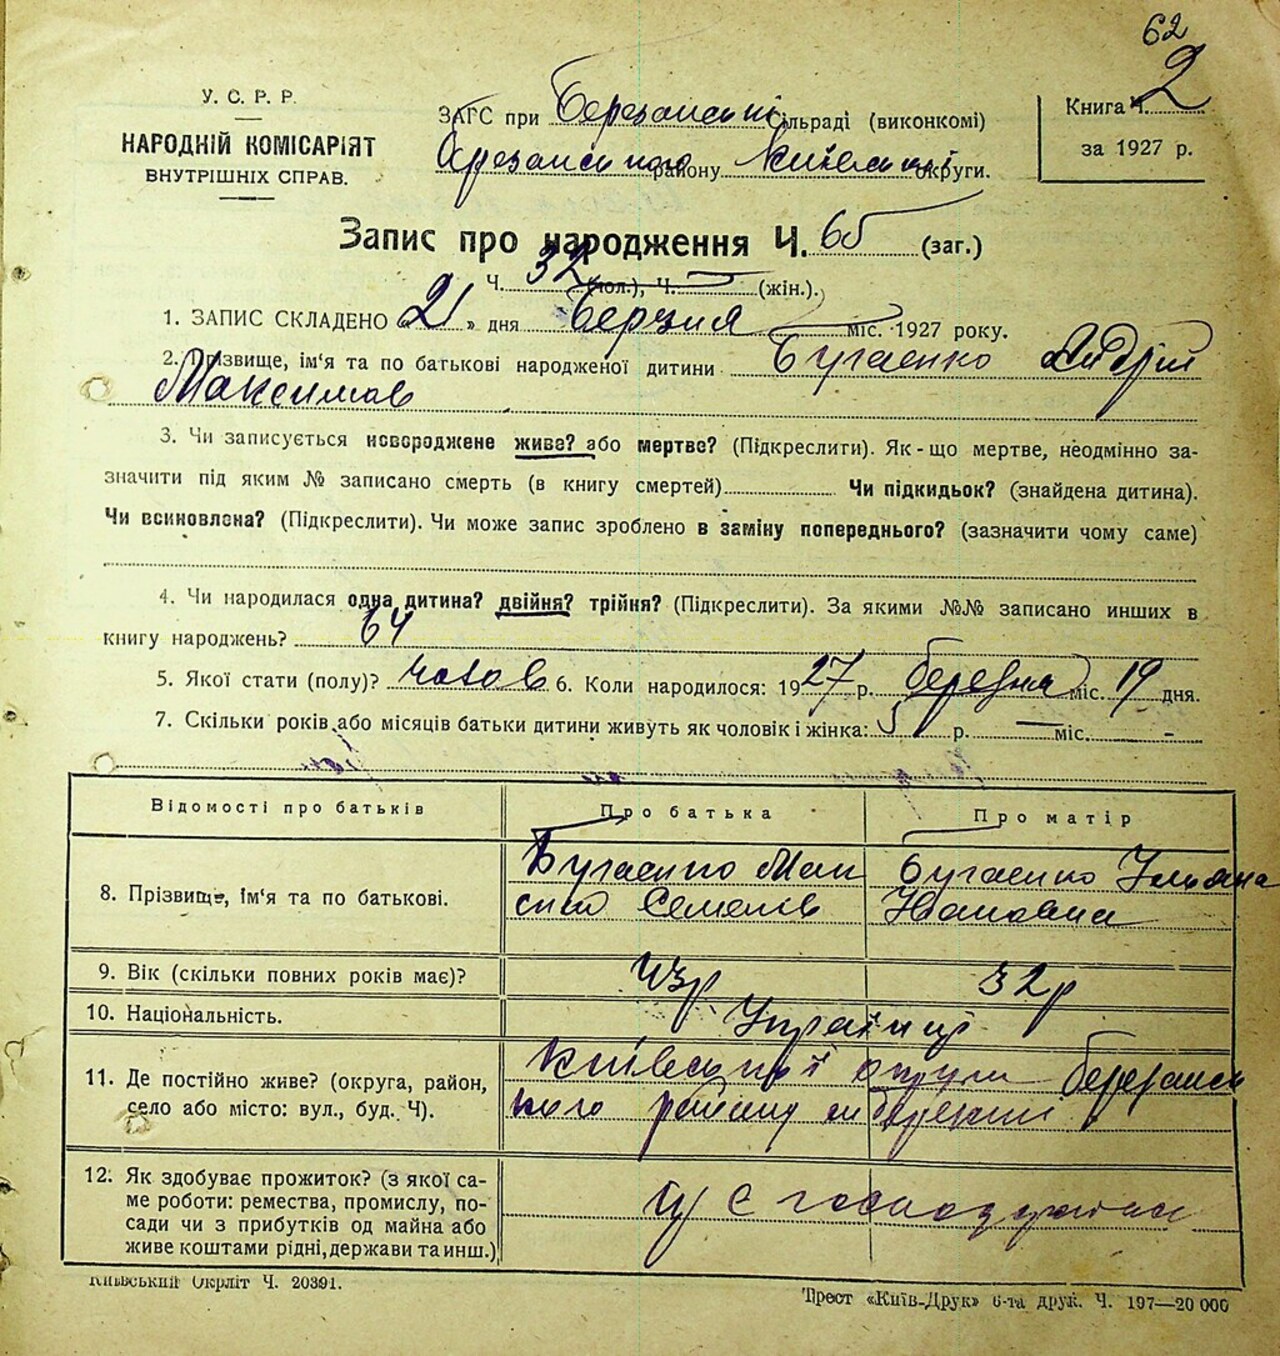 62
У. С. Р. Р.
НАРОДНІЙ КОМІСАРІЯТ
ВНУТРІШНІХ СПРАВ.
ЗАГС при Березанські сільраді (виконкомі)
Березанського району Київської округи.
Книга Ч. 2
за 1927 р.
Запис про народження Ч. 65 (заг.)
Ч. 32 (чол.), Ч. — (жін.).
1. ЗАПИС СКЛАДЕНО « 21 » дня Березня міс. 1927 року.
2. Прізвище, ім'я та по батькові народженої дитини Бугаенко Андрій
Максимов
3. Чи записується новороджене живе? або мертве? (Підкреслити). Як-що мертве, неодмінно за-
значити під яким № записано смерть (в книгу смертей) Чи підкидьок? (знайдена дитина).
Чи всиновлена? (Підкреслити). Чи може запис зроблено в заміну попереднього? (зазначити чому саме)
4. Чи народилася одна дитина? двійня? трійня? (Підкреслити). За якими №№ записано инших в
книгу народжень? 64
5. Якої стати (полу)? 6. Коли народилося: 1927 р. березня міс. 19 дня.
7. Скільки років або місяців батьки дитини живуть як чоловік і жінка: 5 р. — міс. -
Відомості про батьків Про батька Про матір
8. Прізвище, ім'я та по батькові. Бугаенко Мак Бугаенко Ульяна
сим Семенов Ивановна
9. Вік (скільки повних років має)? 43р 32р
10. Національність. Українці
11. Де постійно живе? (округа, район, Київської округи березансь
село або місто: вул., буд. Ч). кого району
12. Як здобуває прожиток? (з якої са-
ме роботи: ремества, промислу, по-
сади чи з прибутків од майна або
живе коштами рідні, держави та инш.)
Київський Окрліт Ч. 20391.
Трест «Київ-Друк» 6-та друк. Ч. 197—20 000